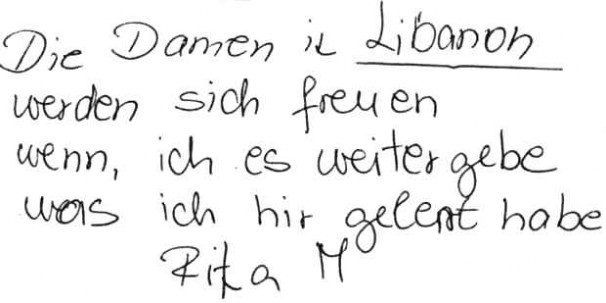 Die Damen in Libanon
werden sich freuen
wenn, ich es weitergebe
was ich hir gelernt habe
Rita M